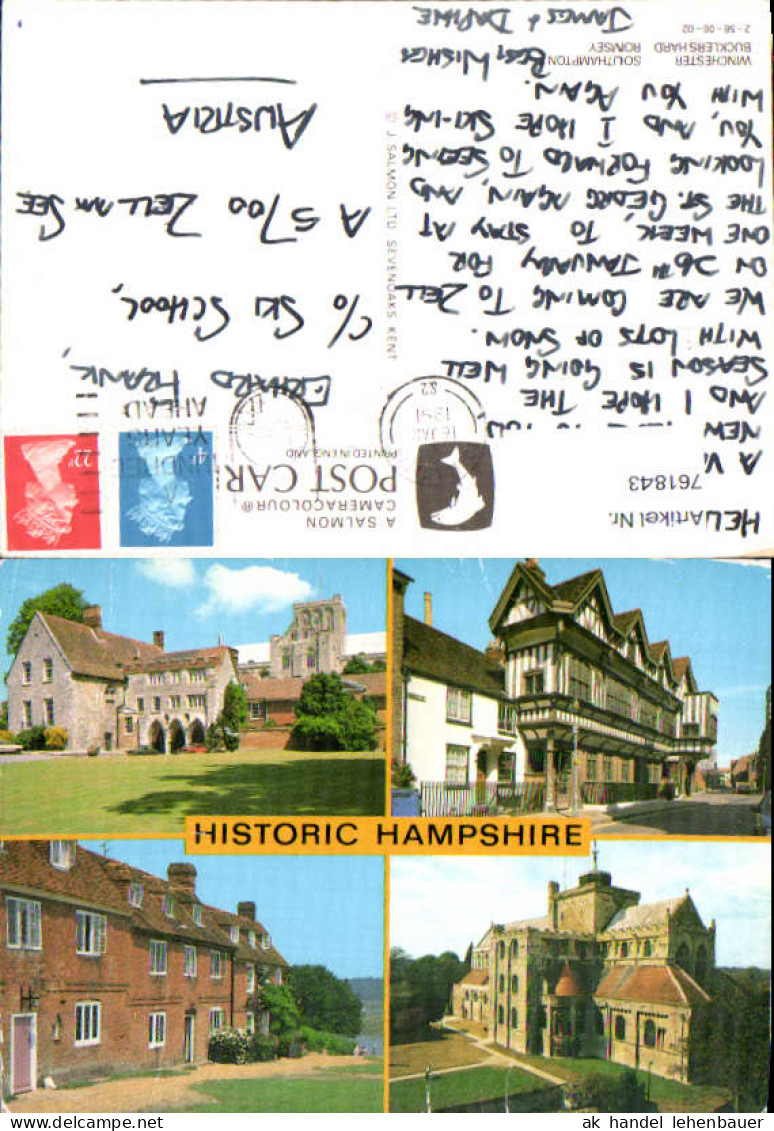 HEL
Artikel Nr.
761843
A V.
NEW
AND I HOPE THE
SEASON IS GOING WELL
WITH LOTS OF SNOW.
WE ARE COMING TO ZELL
ON 26TH JANUARY FOR
ONE WEEK, TO STAY AT
THE ST. GEORG AGAIN, AND
LOOKING FORWARD TO SEEING
YOU, AND, I HOPE SKI-ING
WITH YOU AGAIN.
BEST WISHES
JAMES & DAPHNE
WINCHESTER SOUTHAMPTON
BUCKLERS HARD ROMSEY
2-56-06-02
A SALMON
CAMERACOLOUR®
POST CAR
PRINTED IN ENGLAND
© J. SALMON LTD. SEVENOAKS KENT
1991
YEARS
AHEAD
22P
ERHARD FRANK,
C/O SKI SCHOOL,
A 5700 ZELL AM SEE
AUSTRIA
HISTORIC HAMPSHIRE
ak handel lehenbauer